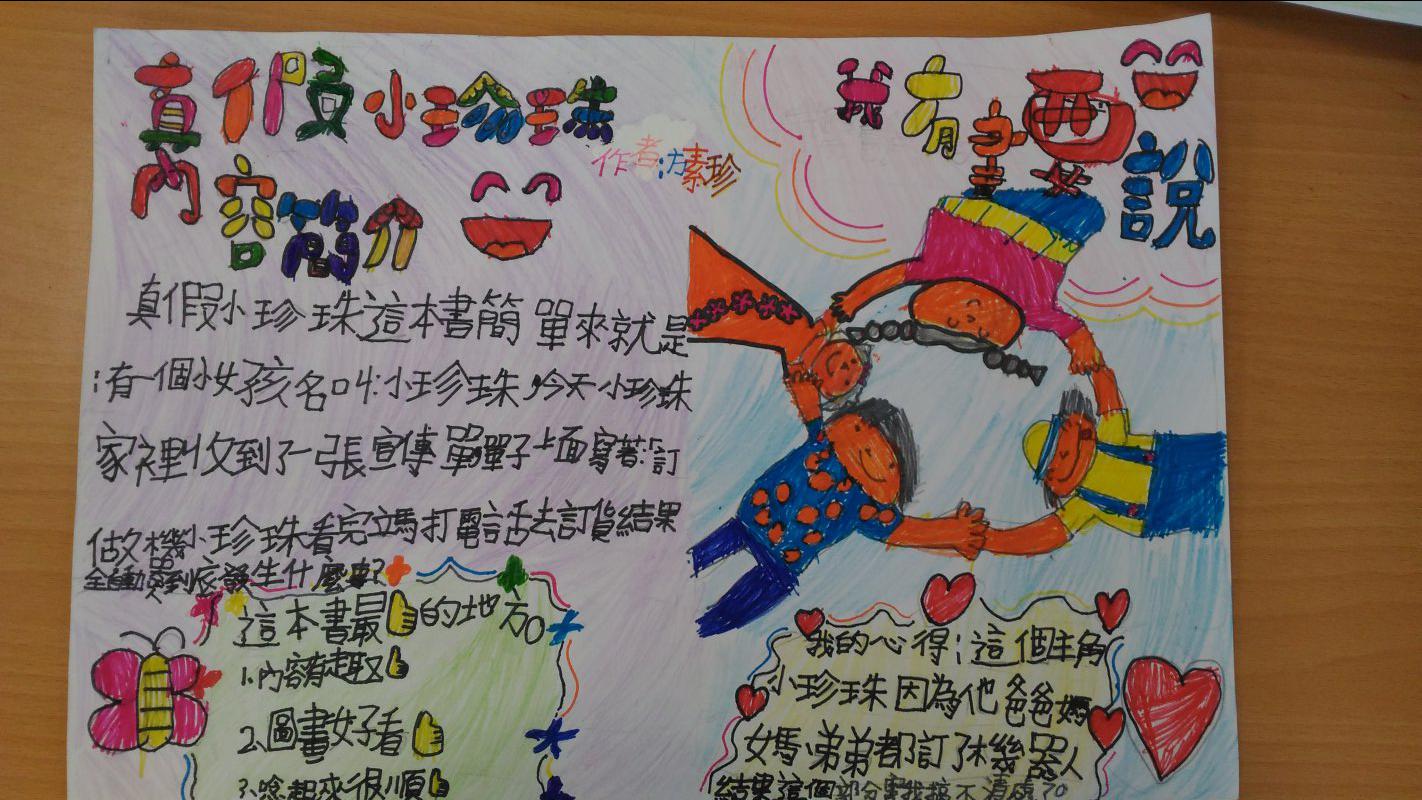 真假小珍珠
內容簡介
作者:方素珍
真假小珍珠這本書簡單來就是
:有一個小女孩名叫:小珍珠,今天小珍珠
家裡收到了一張宣傳單單子上面寫著:「訂
做機小珍珠看完媽打電話去訂貨結果
到底發生什麼事?
這本書最的地方。
1.內容有趣
2.圖畫好看
3.唸起來很順
我有話說
我的心得:這個主角
小珍珠因為他爸爸媽
媽弟弟都訂了機器人
結果這個部分害我搞不清處了。